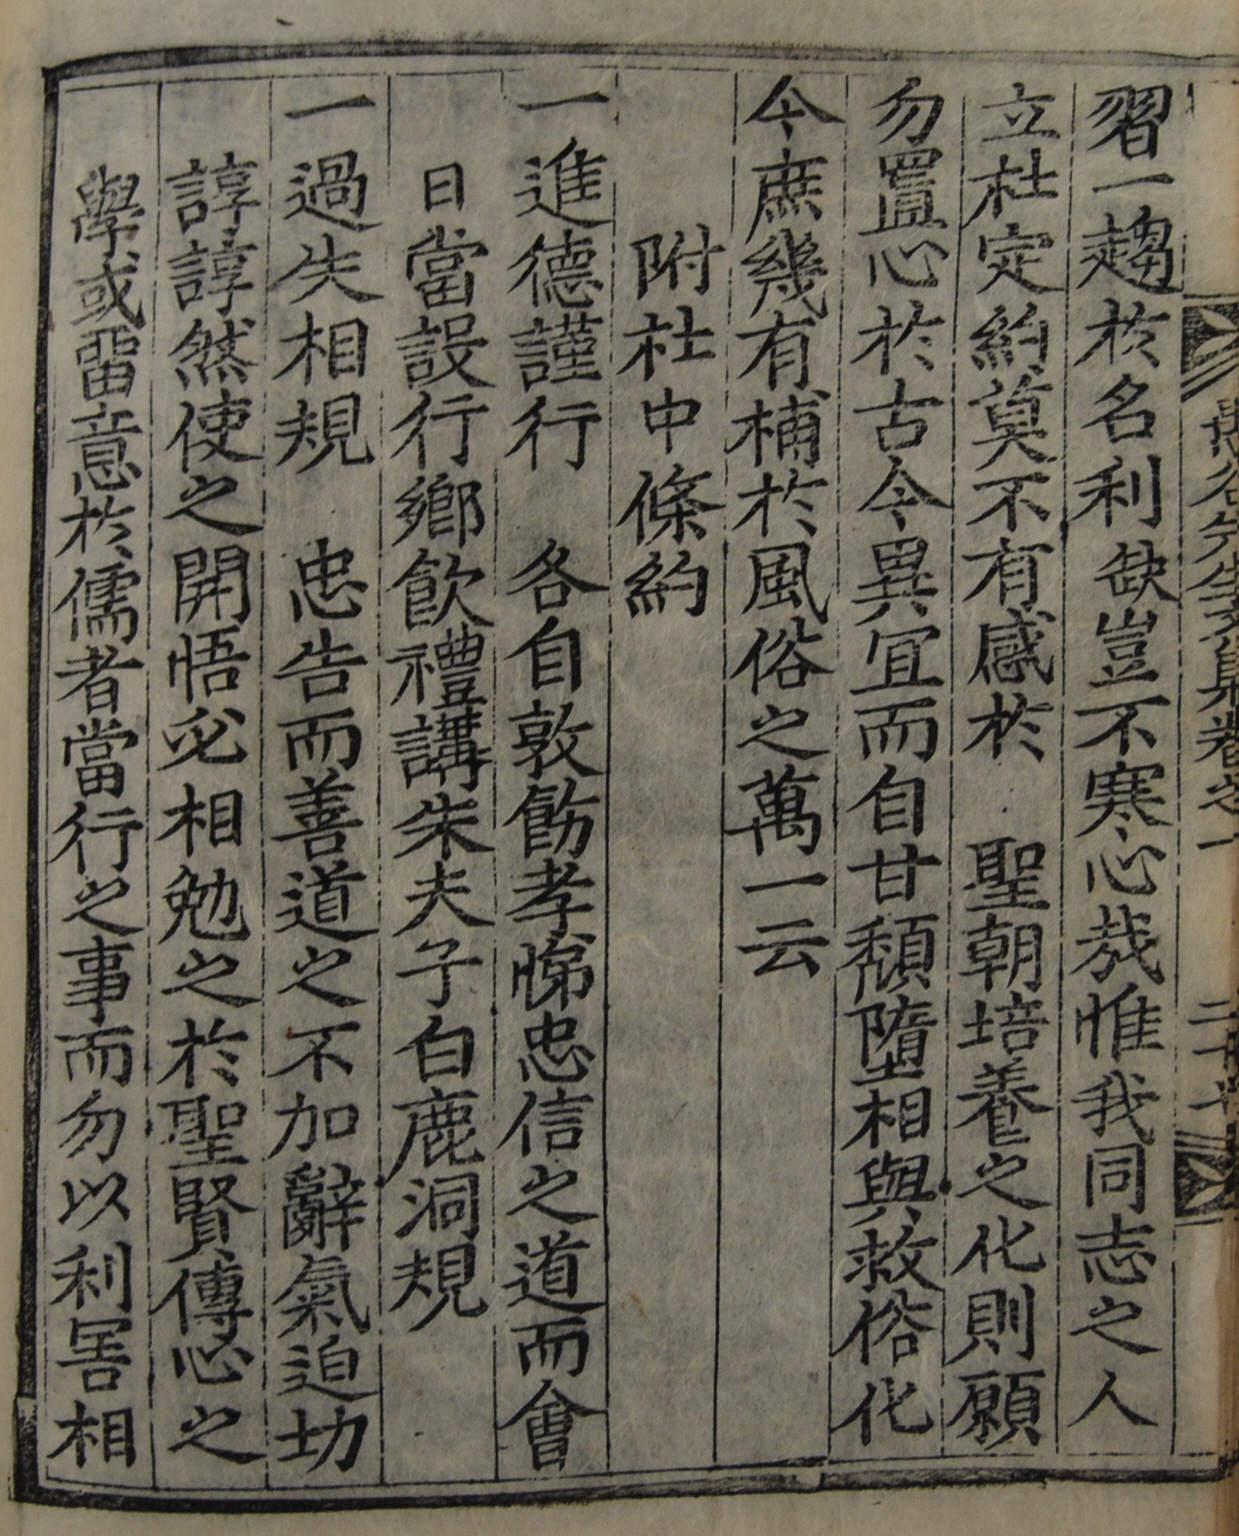 習一趨於名利缺豈不寒心哉惟我同志之人
立社定約莫不有感於 聖朝培養之化則願
勿置心於古今異宜而自甘頹墮相與救俗化
今庶幾有補於風俗之萬一云
附社中條約
一進德謹行 各自敦飭孝悌忠信之道而會
日當設行鄉飮禮講朱夫子白鹿洞規
一過失相規 忠告而善道之不加辭氣迫切
諄諄然使之開悟必相勉之於聖賢傳心之
學或留意於儒者當行之事而勿以利害相